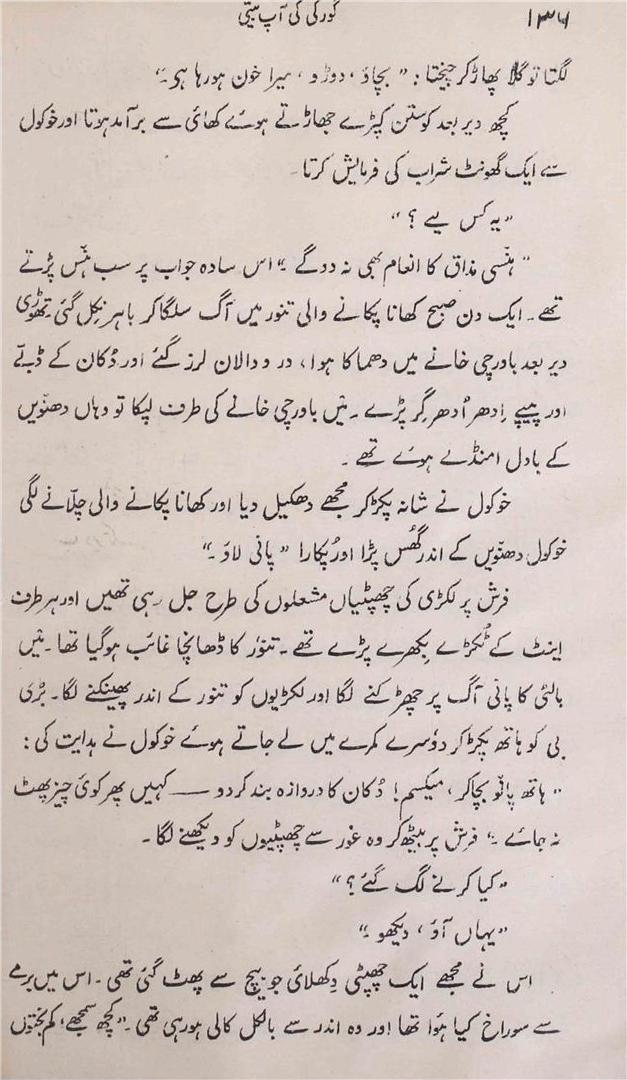 ۱۳۶
گورکی کی آپ بیتی
لگتا تو گلا پھاڑ کر چیختا : " بچاؤ ، دوڑو ، میرا خون ہو رہا ہی ۔"
کچھ دیر بعد کوستن کپڑے جھاڑتے ہوئے کھائی سے برآمد ہوتا اور خوکول
سے ایک گھونٹ شراب کی فرمایش کرتا ۔
" یہ کس لیے ؟ "
" ہنسی مذاق کا انعام بھی نہ دوگے ۔" اس سادہ جواب پر سب ہنس پڑتے
تھے ۔ ایک دن صبح کھانا پکانے والی تنور میں آگ سلگا کر باہر نکل گئی تھوڑی
دیر بعد باورچی خانے میں دھماکا ہوا ، در و دالان لرز گئے اور دُکان کے ڈبے
اور پیپے اِدھر اُدھر گر پڑے ۔ میں باورچی خانے کی طرف لپکا تو وہاں دھنویں
کے بادل امنڈے ہوئے تھے ۔
خوکول نے شانہ پکڑ کر مجھے دھکیل دیا اور کھانا پکانے والی چلّانے لگی
خوکول دھنویں کے اندر گھُس پڑا اور پُکارا " پانی لاؤ ۔"
فرش پر لکڑی کی چھپٹیاں مشعلوں کی طرح جل رہی تھیں اور ہر طرف
اینٹ کے ٹکڑے بکھرے پڑے تھے ۔ تنور کا ڈھانچا غائب ہوگیا تھا ۔ میں
بالٹی کا پانی آگ پر چھڑکنے لگا اور لکڑیوں کو تنور کے اندر پھینکنے لگا ۔ بڑی
بی کو ہاتھ پکڑ کر دوسرے کمرے میں لے جاتے ہوئے خوکول نے ہدایت کی :
" ہاتھ پانْو بچاکر ، میکسم ! دُکان کا دروازہ بند کردو —— کہیں پھر کوئی چیز پھٹ
نہ جائے ۔" فرش پر بیٹھ کر وہ غور سے چھپٹیوں کو دیکھنے لگا ۔
" کیا کرنے لگ گئے ؟ "
" یہاں آؤ ، دیکھو ۔"
اس نے مجھے ایک چھپٹی دکھلائی جو بیچ سے پھٹ گئی تھی ۔ اس میں برمے
سے سوراخ کیا ہوا تھا اور وہ اندر سے بالکل کالی ہو رہی تھی ۔ " کچھ سمجھے ، کم بختوں